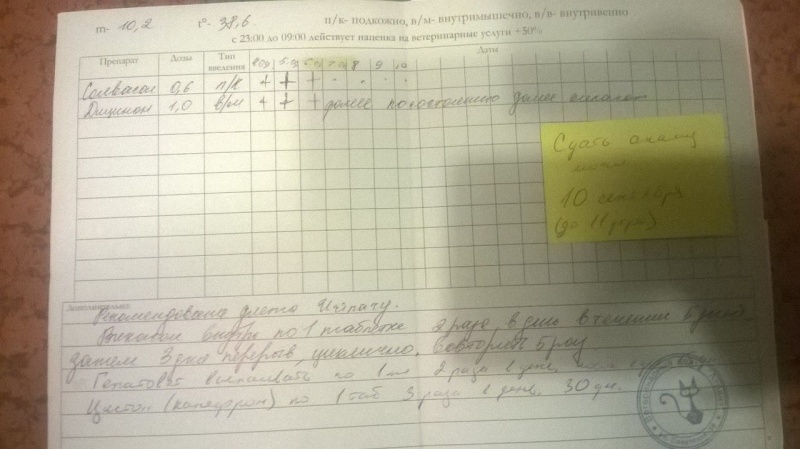 m- 10,2 t°- 38,6. п/к- подкожно, в/м- внутримышечно, в/в- внутривенно
с 23:00 до 09:00 действует наценка на ветеринарные услуги +50%
Препарат Дозы Тип введения Даты
8 9 10
0,6 п/к + + +
Дицинон 1,0 в/м + + + далее по состоянию далее
Сдать анализ
мочи
10 сентября
(до 11 утра)
Дополнительно:
Рекомендована диета
внутрь по 1 таблетке 2 раза в день в течении 5 дней
затем 3 дня перерыв, циклично, повторить 5 раз
Гепатовет выпаивать по 1 мл 2 раза в день
Цистон (канефрон) по 1 таб 3 раза в день. 30 дн.